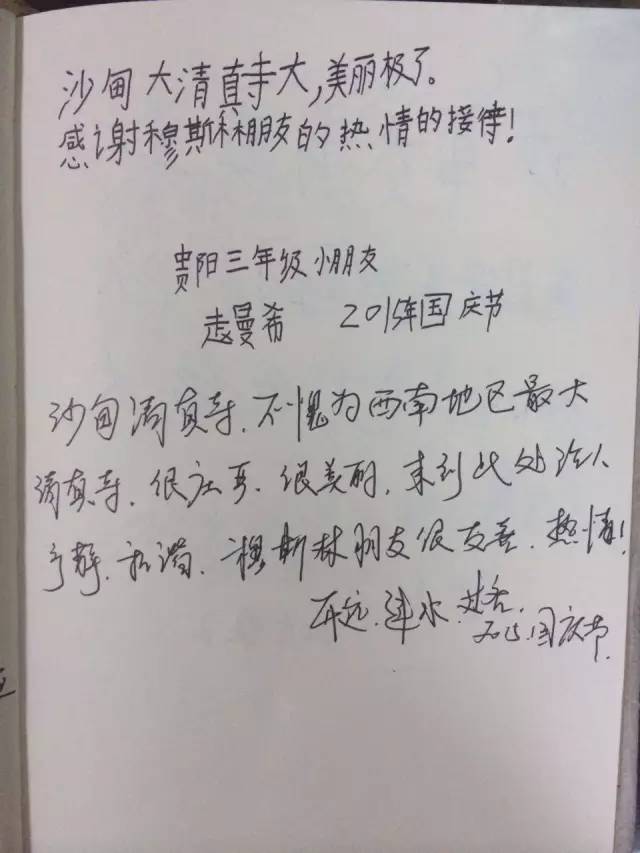 沙甸大清真寺大,美丽极了。
感谢穆斯林朋友的热情的接待!
贵阳三年级小朋友
曼希 2015年国庆节
沙甸清真寺、不愧为西南地区最大
清真寺、很壮哥、很美丽,来到此处让人
宁静、和谐、穆斯林朋友很友善、热情!
开远、建水
2015.国庆节